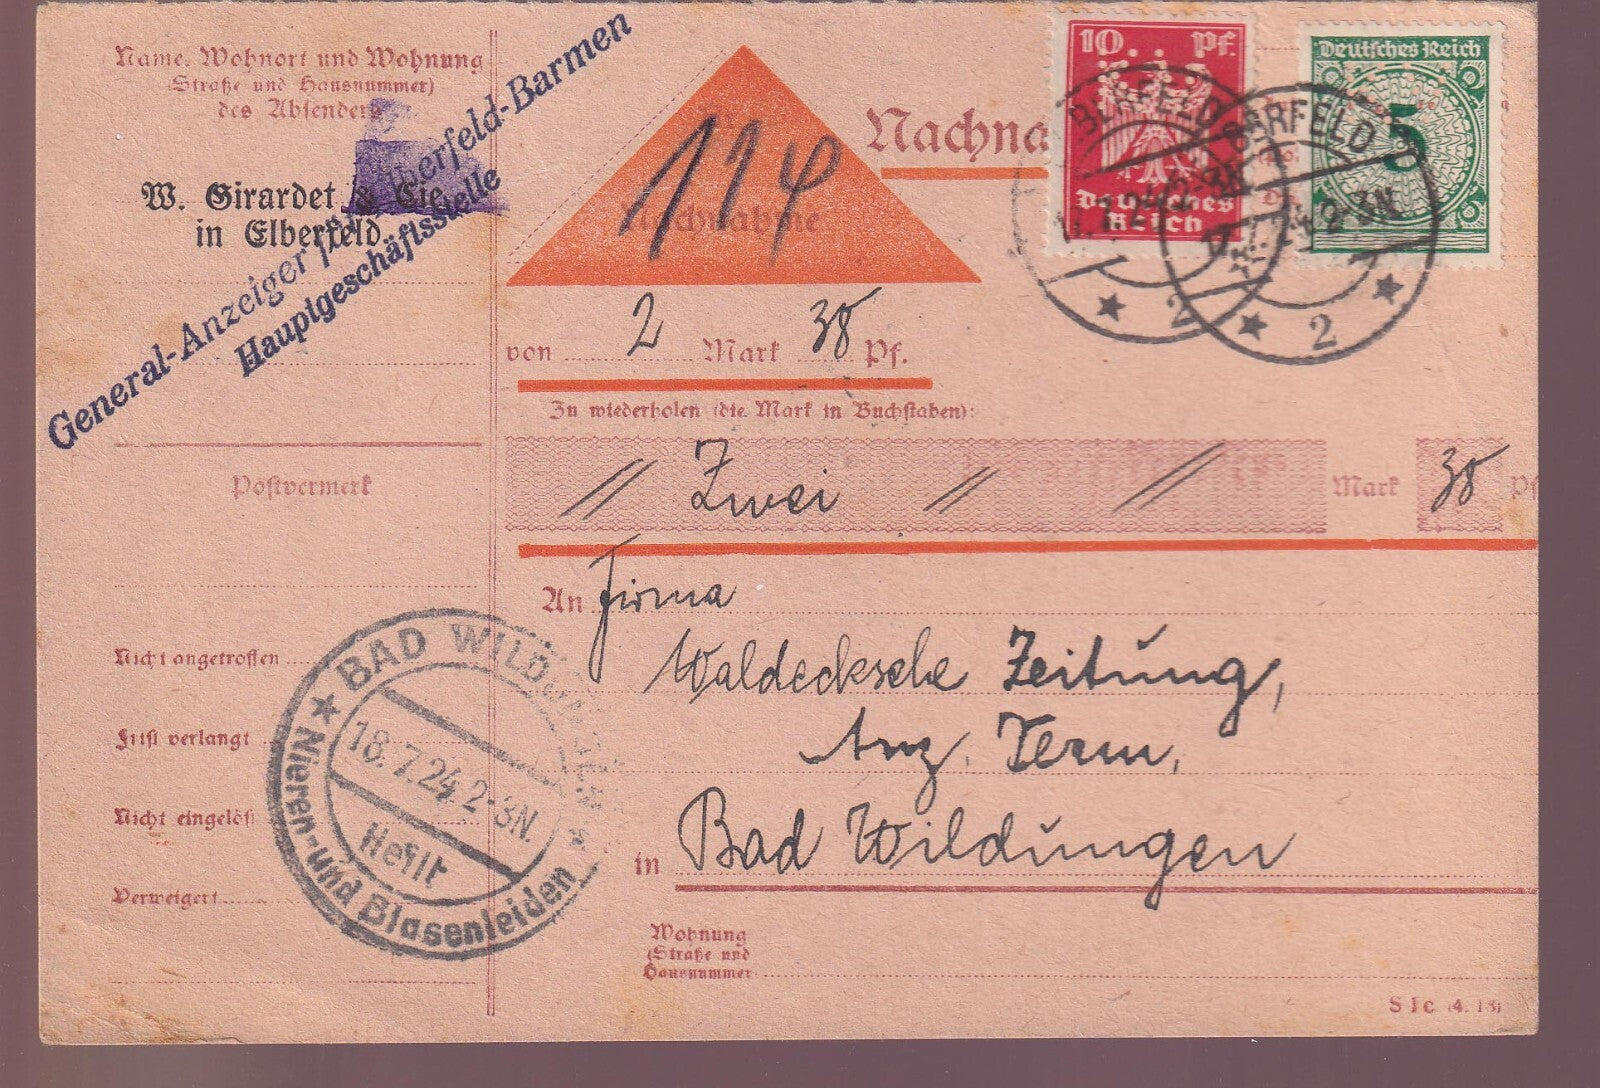 Name, Wohnort und Wohnung
(Straße und Hausnummer)
des Absenders
W. Girardet & Cie.
in Elberfeld.
General-Anzeiger für Elberfeld-Barmen
Hauptgeschäftsstelle
Postvermerk
Nicht angetroffen
Frist verlangt
Nicht eingelöst
Verweigert
BAD WILDUNGEN
18.7.24. 2-3N.
Heilt
Nieren- und Blasenleiden
114
Nachnahme
Nachna
10 Pf.
Deutsches
Reich
Deutsches Reich
5
ELBERFELD
2
BARFELD
2
von 2 Mark 38 Pf.
Zu wiederholen (die Mark in Buchstaben):
// Zwei // // Mark 38 Pf
An Firma
Waldecksche Zeitung,
Anz. Term,
in Bad Wildungen
Wohnung
(Straße und
Hausnummer
S 1c (4. 18)